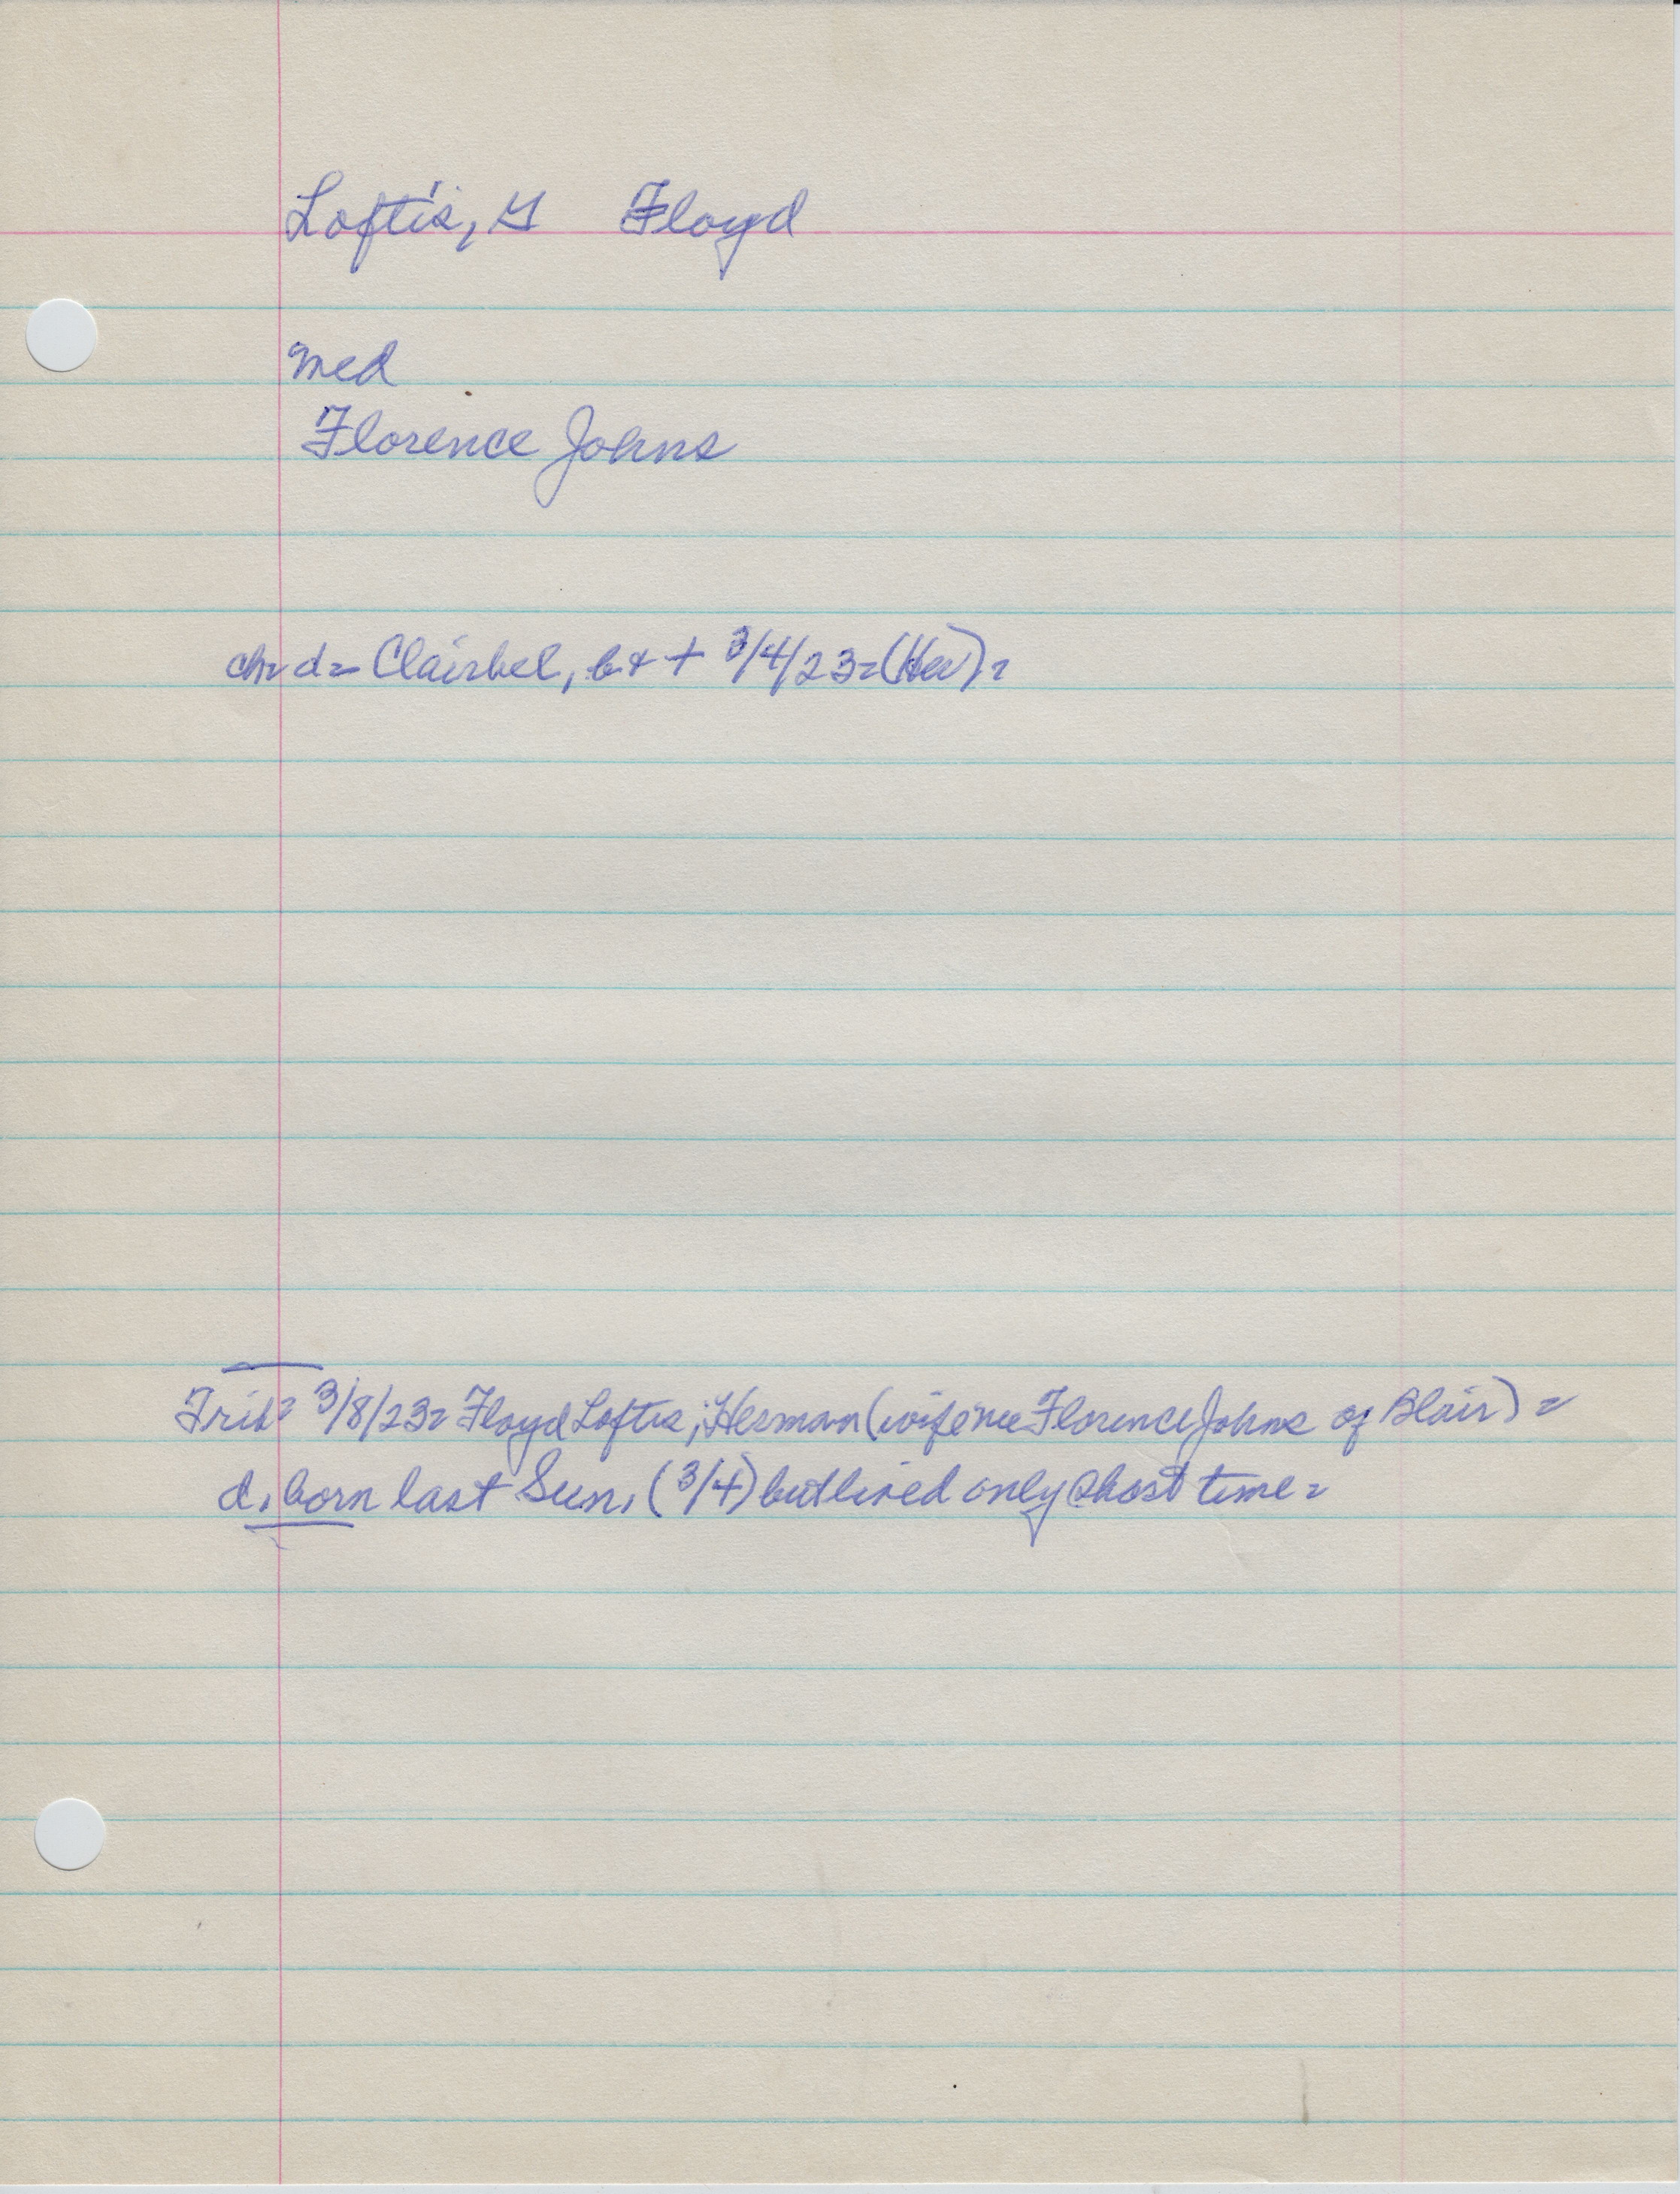 Loftis, G Floyd
med
Florence Johns
ch= d= Clairbel, b & + 3/4/23=(Her)=
Trib= 3/8/23= Floyd Loftis, Herman (wife nee Florence Johns of Blair) =
d. born last Sun. (3/4) but lived only short time=